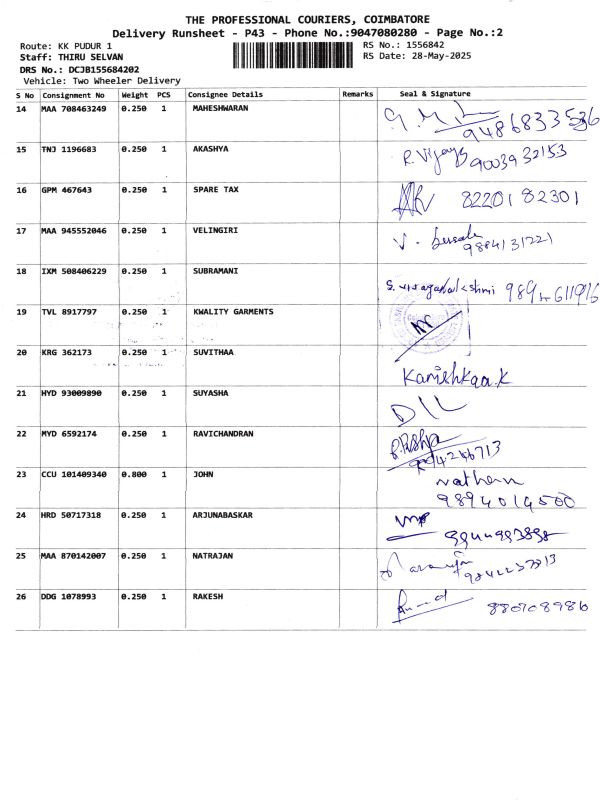 THE PROFESSIONAL COURIERS, COIMBATORE
Delivery Runsheet - P43 - Phone No.:9047080280 - Page No.:2
Route: KK PUDUR 1 RS No.: 1556842
Staff: THIRU SELVAN RS Date: 28-May-2025
DRS No.: DCJB155684202
Vehicle: Two Wheeler Delivery
S No Consignment No Weight PCS Consignee Details Remarks Seal & Signature
14 MAA 708463249 0.250 1 MAHESHWARAN
9486833536
15 TNJ 1196683 0.250 1 AKASHYA R. Vijaya 9003932153
16 GPM 467643 0.250 1 SPARE TAX 8220182301
17 MAA 945552046 0.250 1 VELINGIRI V.
9884131221
18 IXM 508406229 0.250 1 SUBRAMANI
19 TVL 8917797 0.250 1 KWALITY GARMENTS
20 KRG 362173 0.250 1 SUVITHAA
Kanishkaa.K
21 HYD 93009890 0.250 1 SUYASHA
22 MYD 6592174 0.250 1 RAVICHANDRAN
23 CCU 101409340 0.800 1 JOHN Nathan
9894014500
24 HRD 50717318 0.250 1 ARJUNABASKAR
25 MAA 870142007 0.250 1 NATRAJAN
26 DDG 1078993 0.250 1 RAKESH